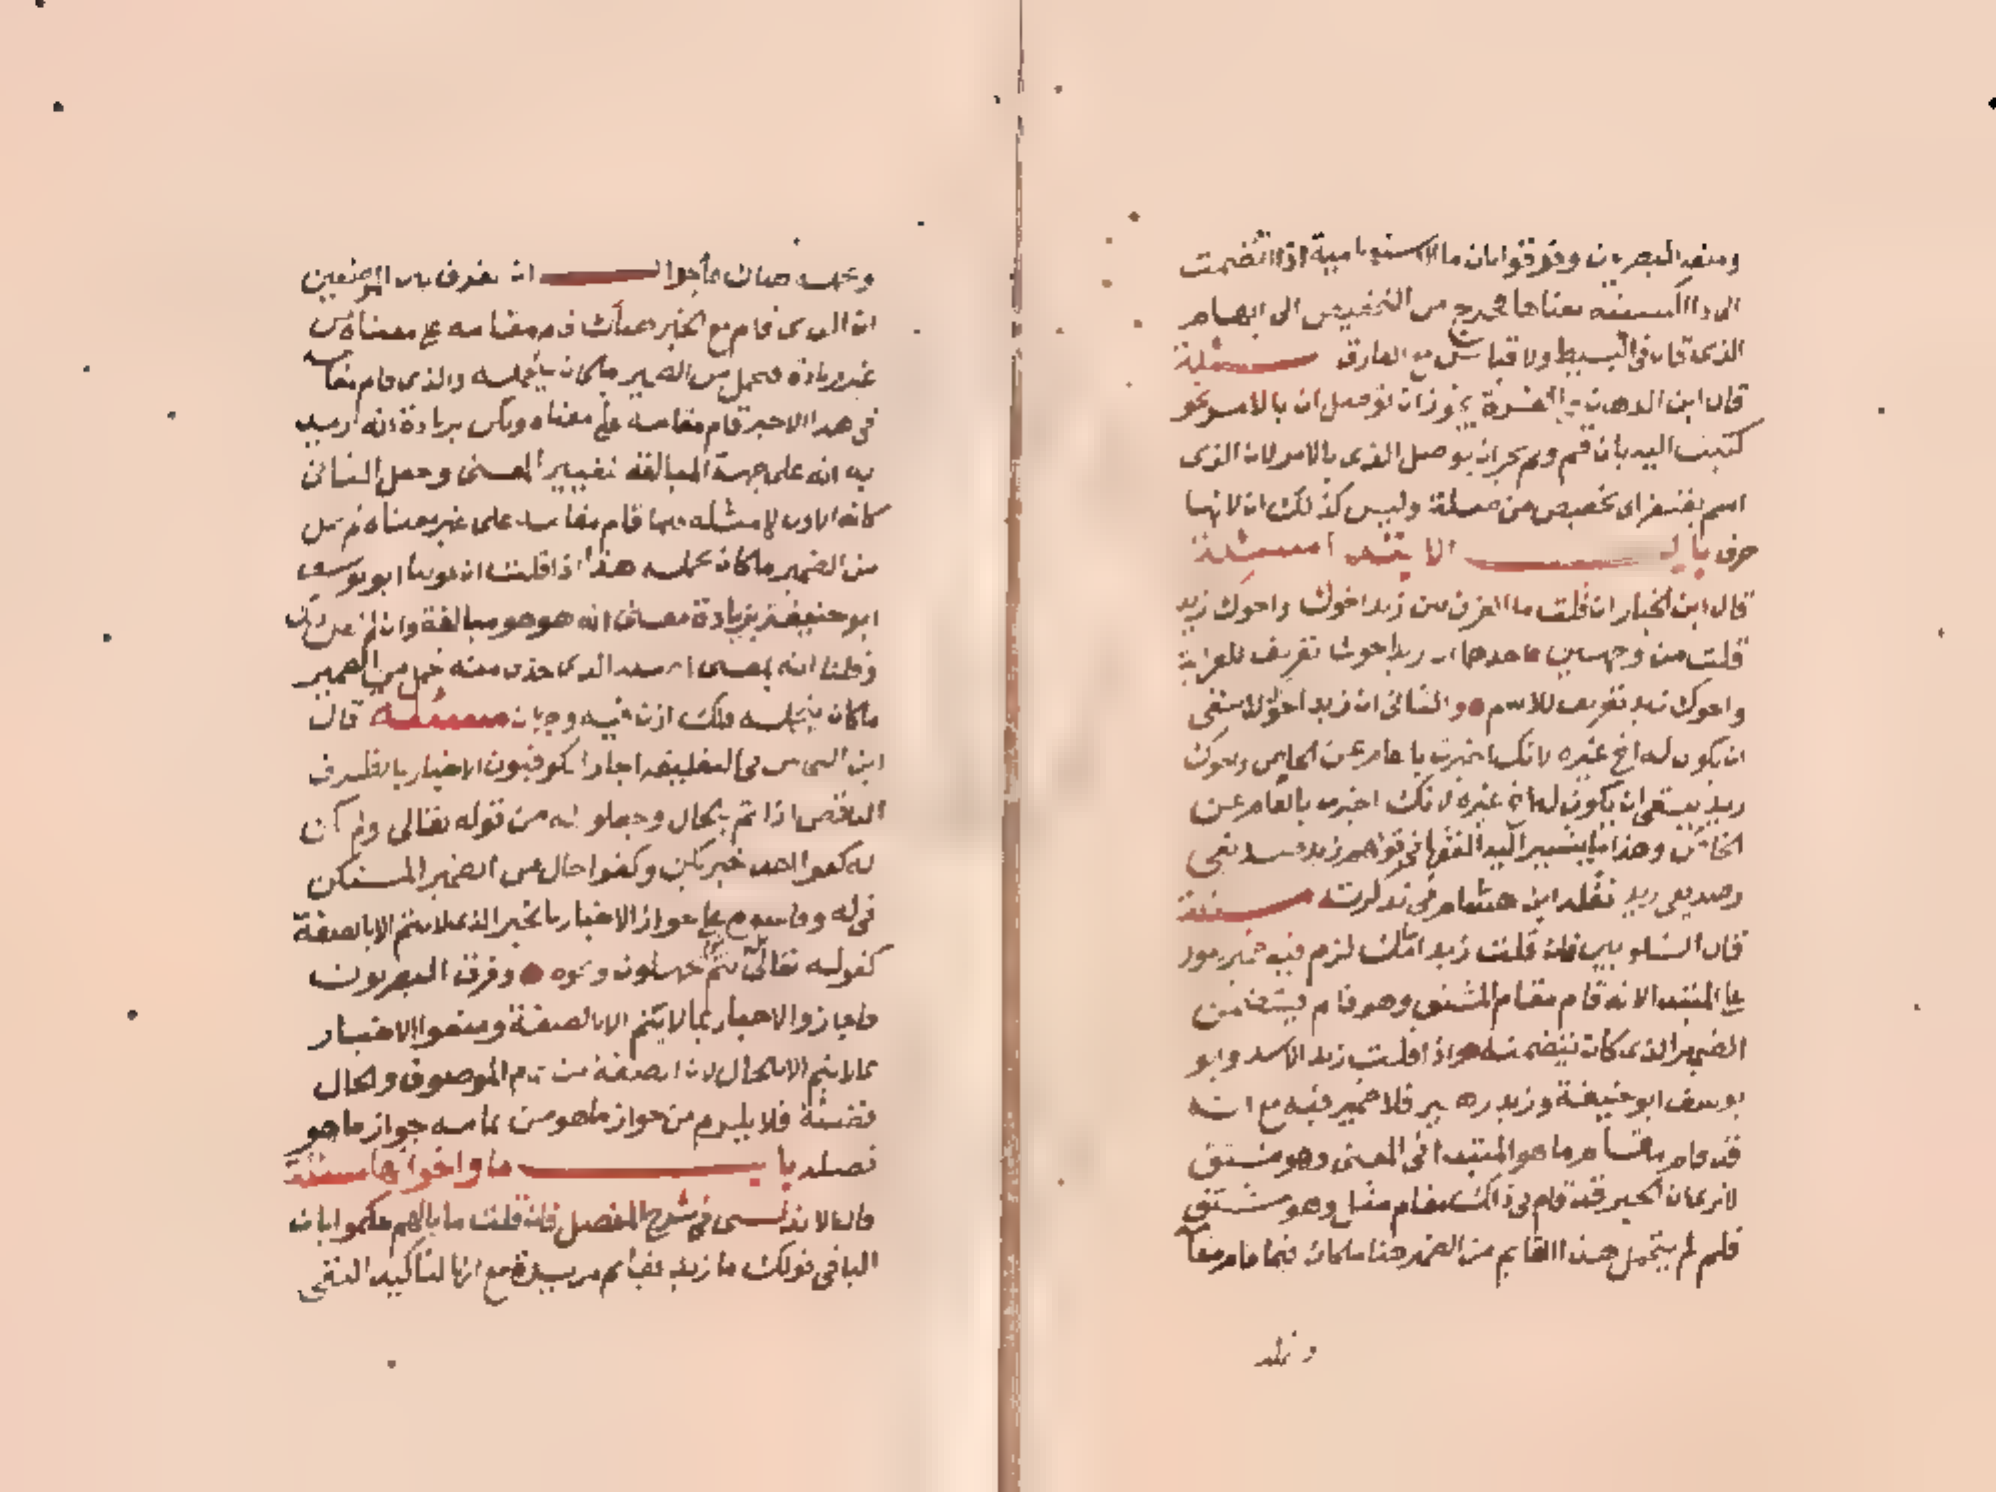 ومنعه البصريون وفرقوا بان ما الاستفهامية اذا انضمت
الى ذا اكسبته معناها فخرج من التخصيص الى ابهام
الذى قال فى البسيط ولا قياس مع الفارق مسئلة
قال ابن الدهان فى الغرة يجوز ان توصل ان بالامر نحو
كتبت اليه بان قم ولم يجز ان يوصل الذى بالامر لان الذى
اسم يفتقر الى تخصيص من صلة وليس كذلك ان لانها
حرف باب الابتدا مسئلة
قال ابن الخباز ان قلت ما الفرق بين زيد اخوك واخوك زيد
قلت من وجهين احدهما ان زيد اخوك تعريف للقرابة
واخوك زيد تعريف للاسم والثانى ان زيد اخوك لا ينفى
ان يكون له اخ غيره لانك اخبرت بالعام عن الخاص واخوك
زيد ينفى ان يكون له اخ غيره لانك اخبرت بالخاص عن
العام وهذا ما يشير اليه الفقها فى قولهم زيد صديقى
وصديقى زيد نقله ابن هشام فى تذكرته مسئلة
قال الشلوبين فان قلت زيد مثلك لزم فيه ضمير يعود
على المبتدا لانه قام مقام المشتق وهو قام فيتضمن
الضمير الذى كان يتضمنه واذا قلت زيد الاسد وابو
يوسف ابو حنيفة وزيد زهير فلا ضمير فيه مع انه
قد قام مقام ما هو المبتدا فى المعنى وهو مشتق
لان الخبر قد قام فى ذلك مقام مثل وهو مشتق
فلم لم يتحمل هذا القايم من الضمير هنا ما كان فيما قام مقامه
وتحمله هناك فالجواب ان الفرق بين الموضعين
ان الذى قام مع الخبر هناك قام مقامه على معناه من
غير زيادة فتحمل من الضمير ما كان يتحمله والذى قام مقامه
فى هذا الاخير قام مقامه على معناه ولكن بزيادة انه اريد
به انه على جهة المبالغة تغيير المعنى وجعل الثانى
كانه الاول لا مثله فلما قام مقامه على غير معناه لم يتحمل
من الضمير ما كان يحمله هذا اذا قلت ان قولنا ابو يوسف
ابو حنيفة بزيادة معنى انه هو هو مبالغة وان لم نعن ذلك
وقلنا انه بمعنى الذى حذف منه تحمل من الضمير
ما كان يتحمله فلك اذن فيه وجهان مسئلة قال
ابن النحاس فى التعليقة اجاز الكوفيون الاخبار بالظرف
الناقص اذا تم بالحال وجعلوا له من قوله تعالى ولم يكن
له كفوا احد خبر يكن وكفوا حال من الضمير المستكن
فى له وقاسوه على جواز الاخبار بالخبر الذى لا يتم الا بالصفة
كقوله تعالى بل انتم قوم تجهلون ونحوه وفرق البصريون
فاجازوا الاخبار بما لا يتم الا بالصفة ومنعوا الاخبار
بما لا يتم الا بالحال لان الصفة من تمام الموصوف والحال
فضلة فلا يلزم من جواز ما هو من تمامه جواز ما هو
فضلة باب ما واخواتها مسئلة
قال الاندلسى فى شرح المفصل فان قلت ما بالهم حكموا بان
البا فى قولك ما زيد بقايم مزيدة مع انها لتاكيد النفى